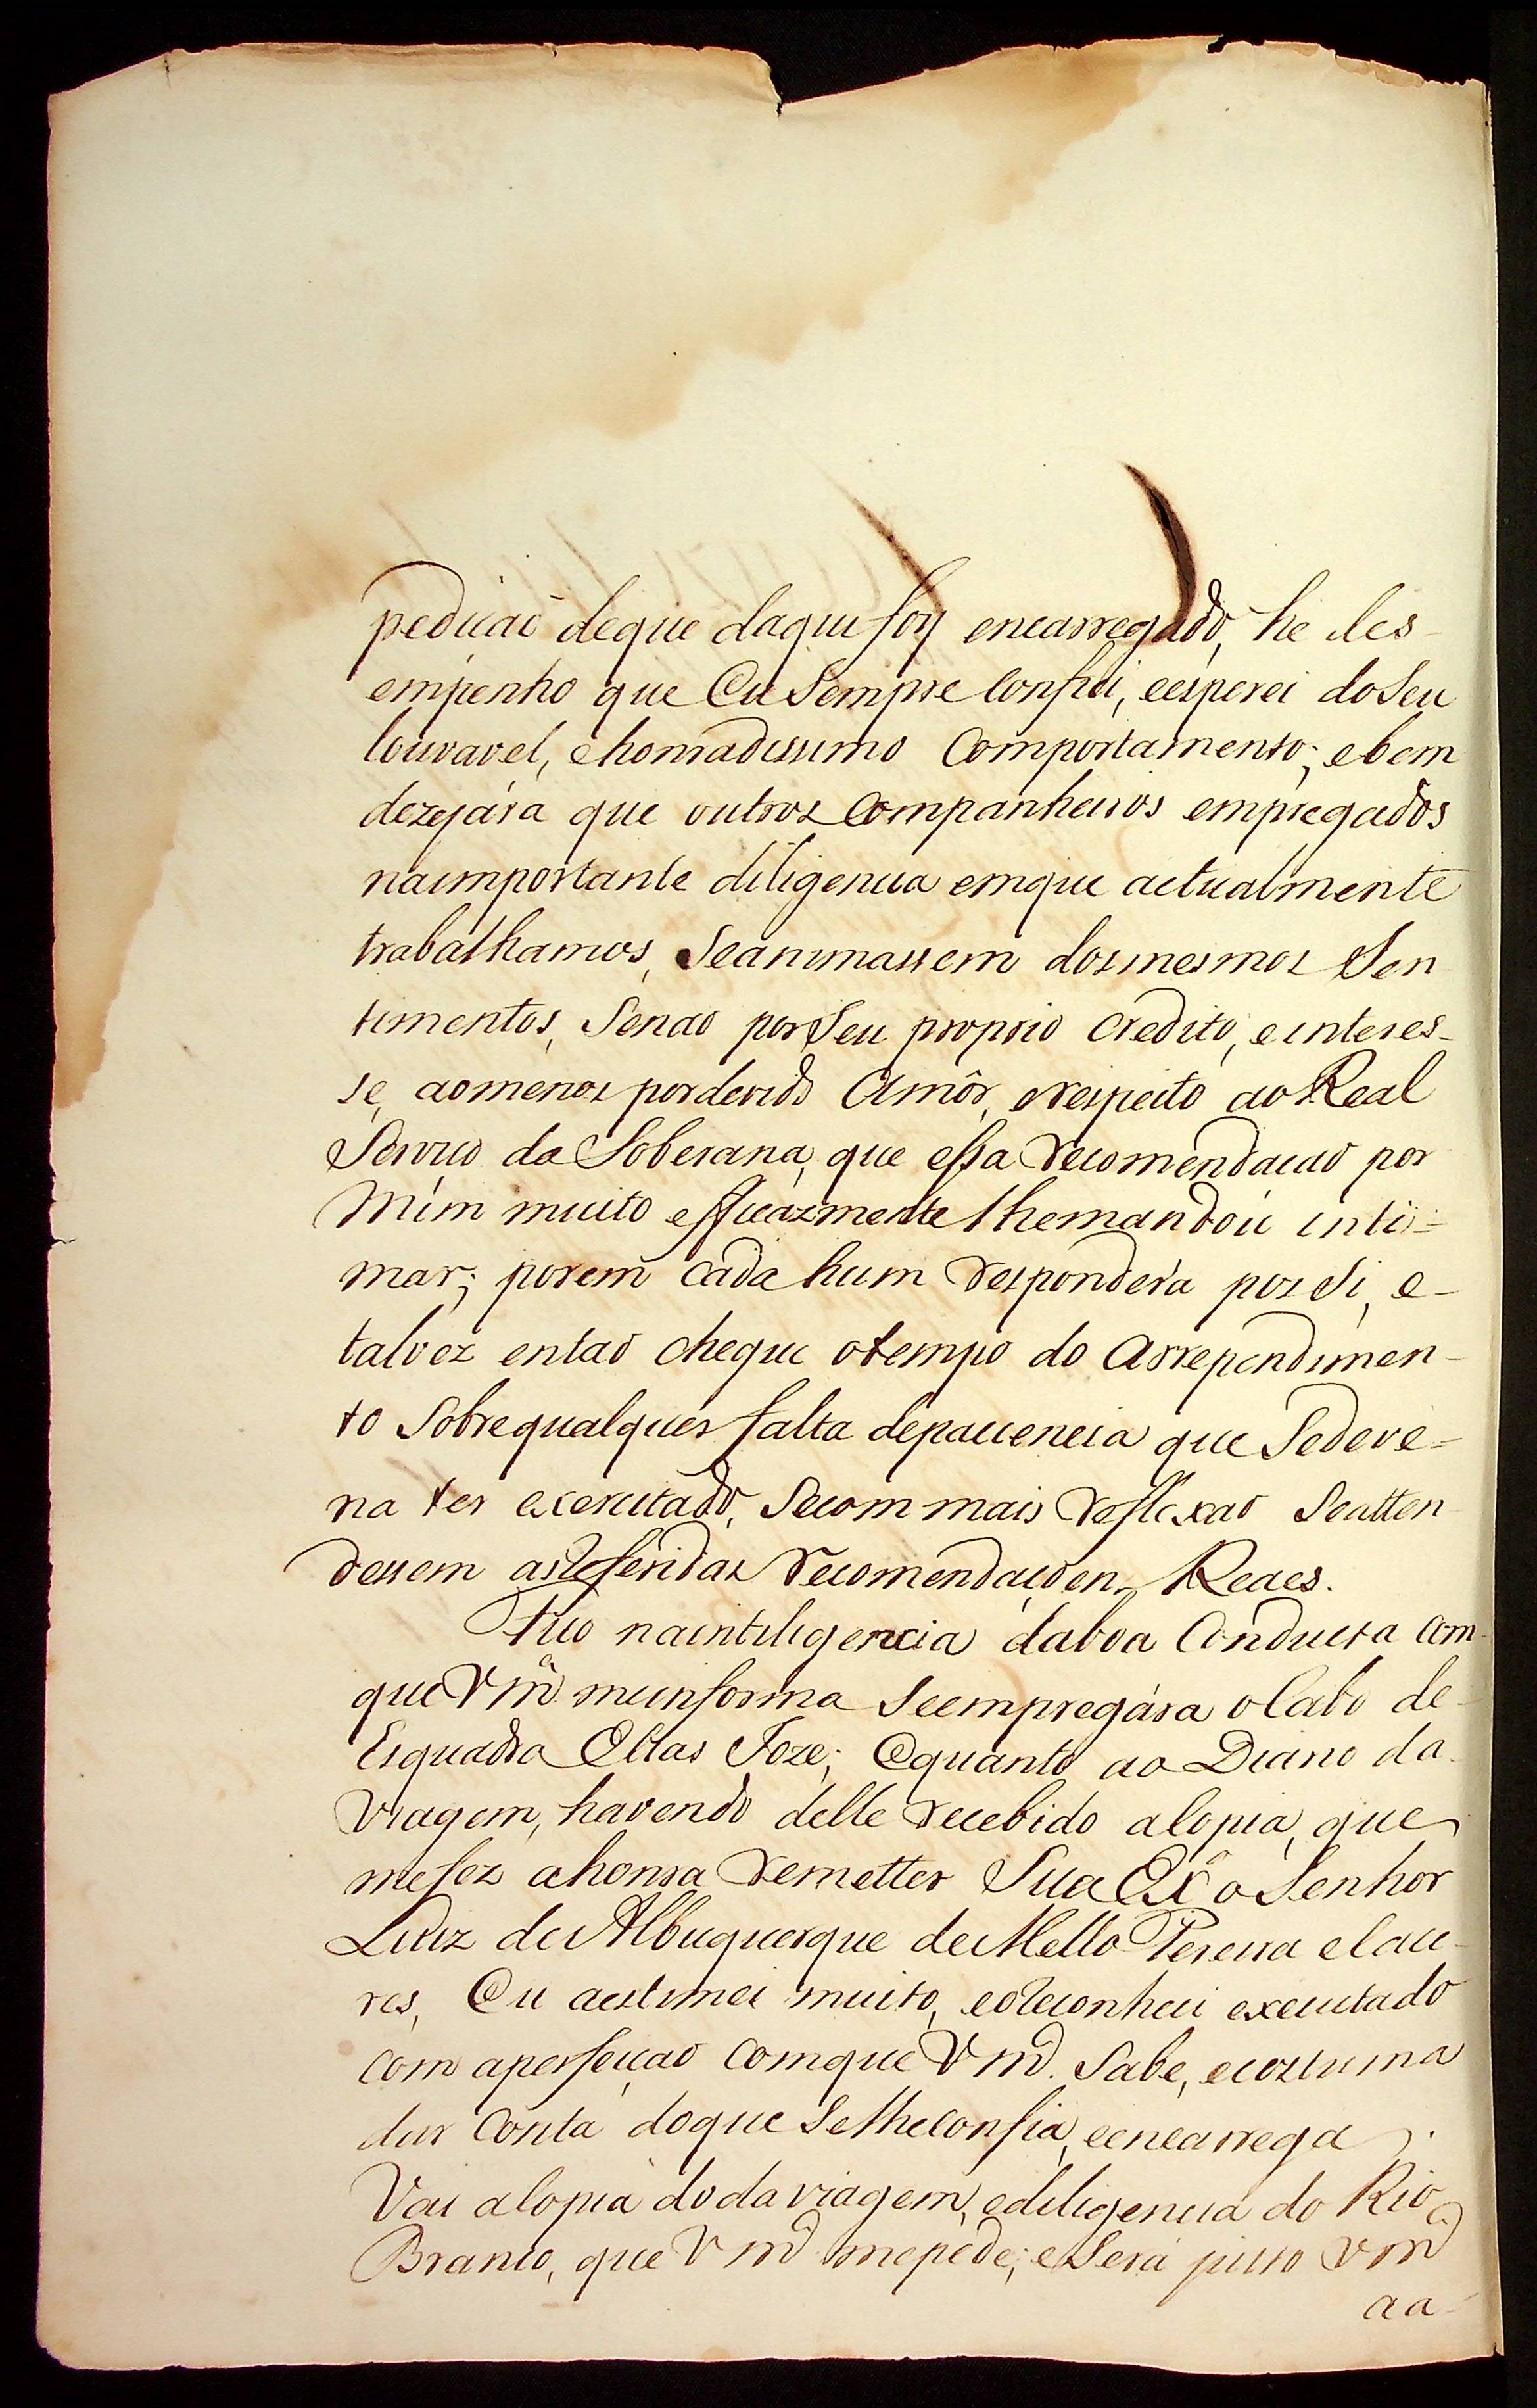 pediçaõ deque daqui foy encarregado, he des-
empenho que Eu Sempre Confiei, eesperei doSeu
louvavel, ehonradissimo Comportamento; ebem
dezejára que outros Companheiros empregados
naimportante diligencia emque actualmente
trabalhamos, Seanimassem dosmesmos Sen
timentos, Senaõ porSeu proprio Credito, einteres-
se, aomenos pordevido Amôr, erespeito ao Real
Serviço da Soberana, que essa recomendaçaõ por
Mim muito efficázmente lhemandou inti-
mar; porem cada hum responderá por Si, e-
talvez entaõ chegue otempo do Arrependimen-
to Sobrequalquer falta depaciencia que Sedeve-
ria ter exercitado, Secom mais reflexaõ Seatten
dessem asReferidas recomendaçoens Reaes.
Fico naintiligencia daboa Conducta Com-
que Vm.ce meinforma Seempregára oCabo de-
Esquadra Elias Joze; Equanto ao Diario da
Viagem, havendo delle recebido aCopia, que
mefez ahonra remetter Sua Ex.a o Senhor
Luiz de Albuquerque deMello Pereira eCace-
res, Eu aestimei muito, eoReconheci executado
Com aperfeiçaõ Comque Vm.ce Sabe, ecostuma
dar Conta doque Selheconfia, eencarrega.
Vai aCopia dodaviagem, ediligencia do Rio
Branco, que Vm.ce mepede; eSerá justo Vm.ce
aa-